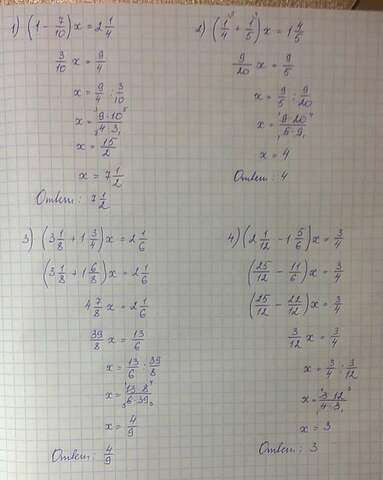 1) (1 - 7/10) x = 2 1/4
3/10 x = 9/4
x = 9/4 : 3/10
x = 9·10/4·3
x = 15/2
x = 7 1/2
Ответ: 7 1/2
2) (1/4 + 1/5) x = 1 4/5
9/20 x = 9/5
x = 9/5 : 9/20
x = 9·20/5·9
x = 4
Ответ: 4
3) (3 1/8 + 1 3/4) x = 2 1/6
(3 1/8 + 1 6/8) x = 2 1/6
4 7/8 x = 2 1/6
39/8 x = 13/6
x = 13/6 : 39/8
x = 13·8/6·39
x = 4/9
Ответ: 4/9
4) (2 1/12 - 1 5/6) x = 3/4
(25/12 - 11/6) x = 3/4
(25/12 - 22/12) x = 3/4
3/12 x = 3/4
x = 3/4 : 3/12
x = 3·12/4·3
x = 3
Ответ: 3